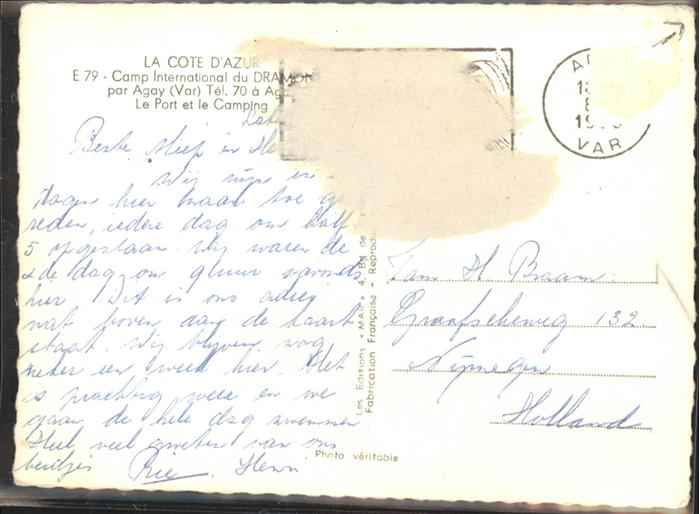 LA COTE D'AZUR
E 79 - Camp International du DRAMON
par Agay (Var) Tél. 70 à Ag
Le Port et le Camping
Beste in
Wij zijn in
dagen hier naar toe ge
reden, iedere dag om half
5 opgestaan. Wij waren de
2de dag om savonds
hier. Dit is ons adres
wat boven aan de kaart
staat. Wij blijven nog
zeker een week hier. Het
is prachtig weer en we
gaan de hele dag zwemmen
Heel veel groeten van ons
beidjes Rie. Henri
Les Editions « MAR » 4, Bd de
Fabrication Française - Reprodu
Photo véritable
A
18
8
19
VAR
Fam H Braam.
Graafscheweg 132
Nijmegen
Holland